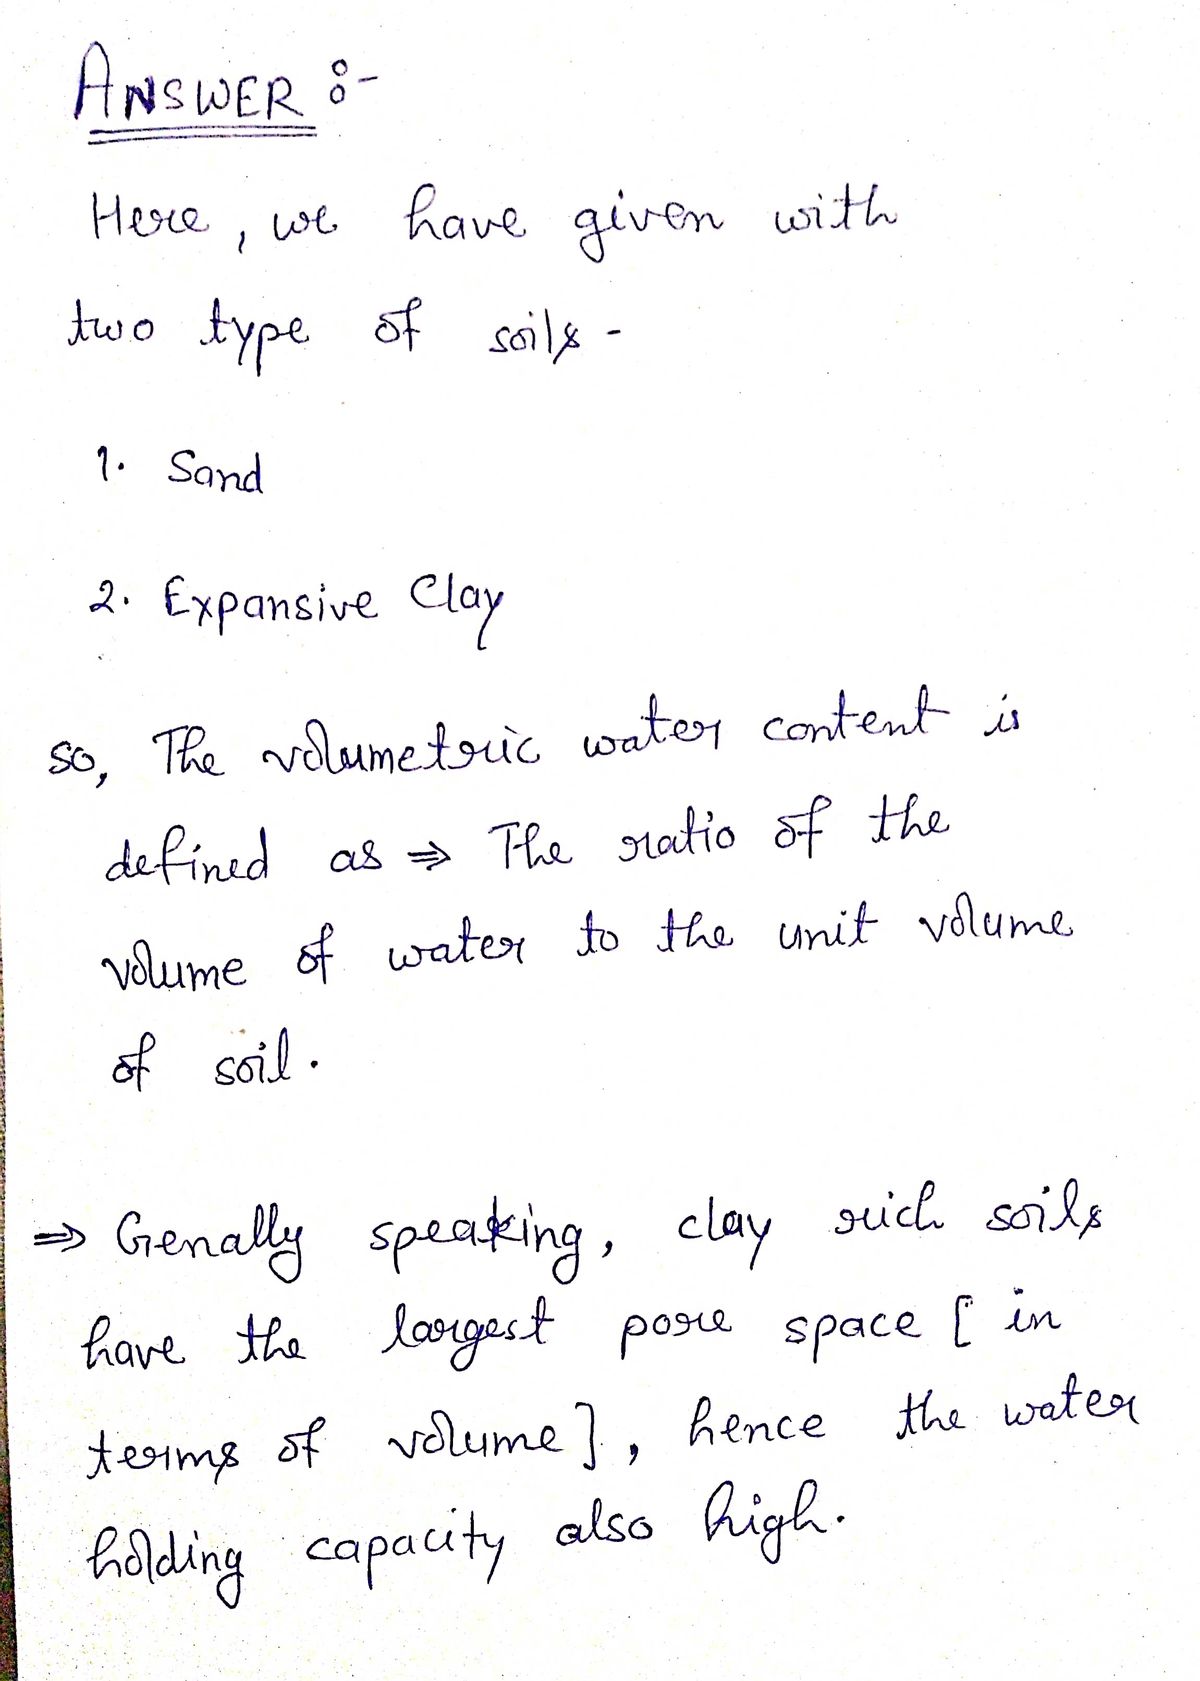 ANSWER :-
Here, we have given with
two type of soils -
1. Sand
2. Expansive Clay
so, The volumetric water content is
defined as ⇒ The ratio of the
volume of water to the unit volume
of soil.
⇒ Genally speaking, clay rich soils
have the largest pore space [ in
terms of volume ], hence the water
holding capacity also high.